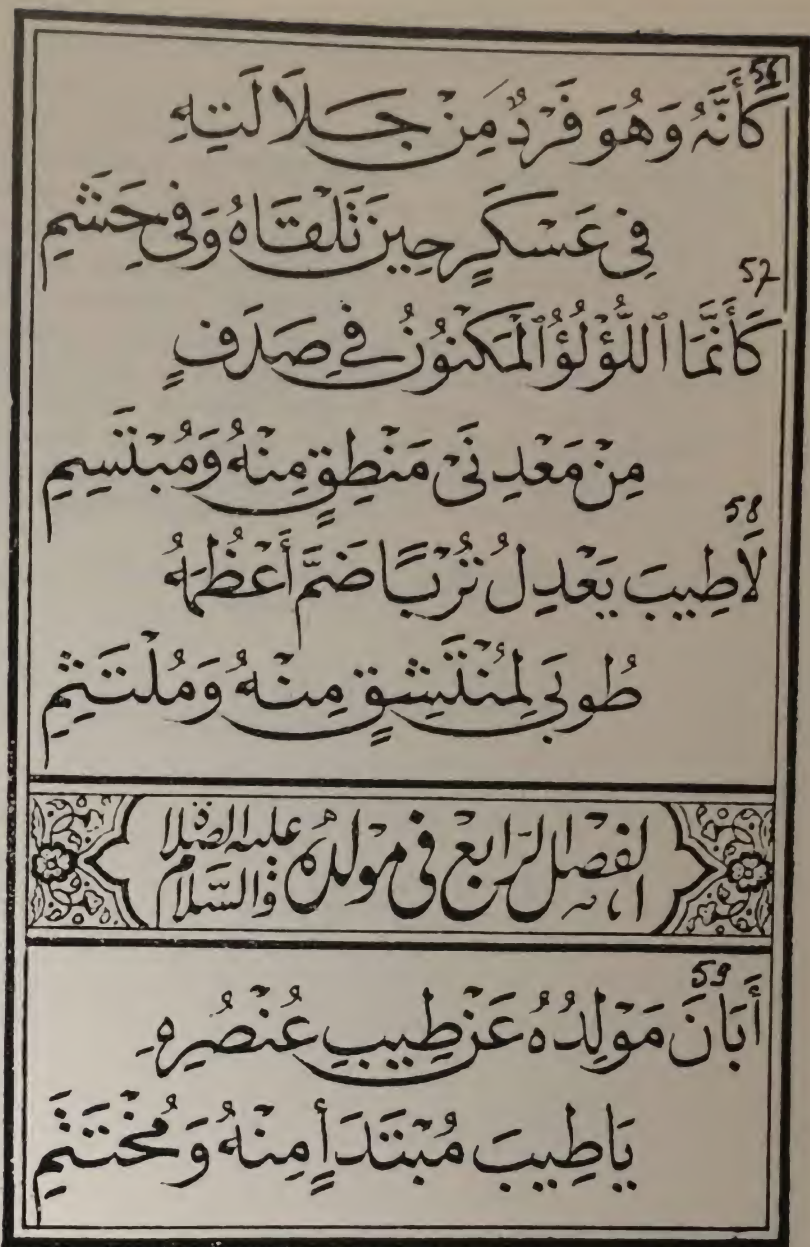 56
كَأَنَّهُ وَهُوَ فَرْدٌ مِنْ جَلَالَتِهِ
فِي عَسْكَرٍ حِينَ تَلْقَاهُ وَفِي حَشَمِ
57
كَأَنَّمَا اللُّؤْلُؤُ الْمَكْنُونُ فِي صَدَفٍ
مِنْ مَعْدِنَيْ مَنْطِقٍ مِنْهُ وَمُبْتَسِمِ
58
لَا طِيبَ يَعْدِلُ تُرْبًا ضَمَّ أَعْظُمَهُ
طُوبَى لِمُنْتَشِقٍ مِنْهُ وَمُلْتَثِمِ
الفصل الرابع في مولده عليه الصلاة والسلام
59
أَبَانَ مَوْلِدُهُ عَنْ طِيبِ عُنْصُرِهِ
يَا طِيبَ مُبْتَدَأٍ مِنْهُ وَمُخْتَتَمِ